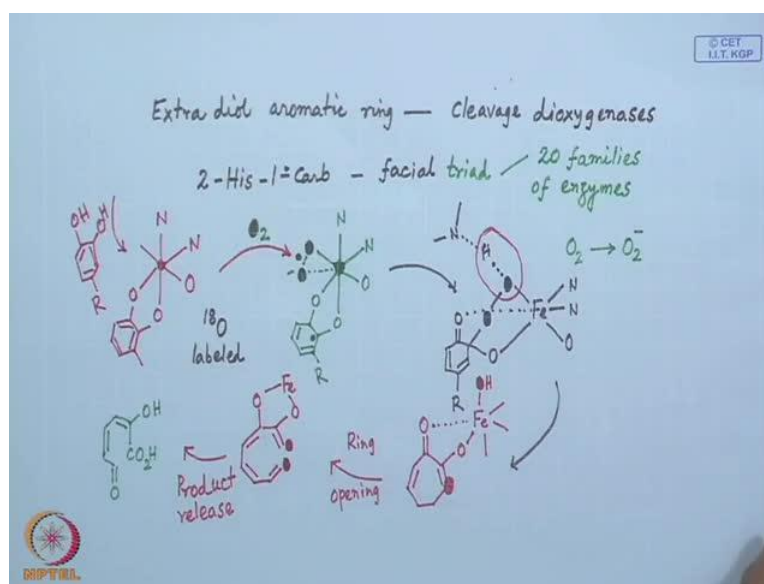 © CET
I.I.T. KGP
Extra diol aromatic ring — Cleavage dioxygenases
2-His-1-Carb - facial triad / 20 families
of enzymes
OH
OH
R
N
N
O
O
O
O2
18O
labeled
N
N
O
O
O
R
N
H
O
O
R
Fe
N
N
O
O2 → O2-
OH
Fe
O
O
Ring
opening
Fe
O
O
Product
release
OH
CO2H
O
NPTEL